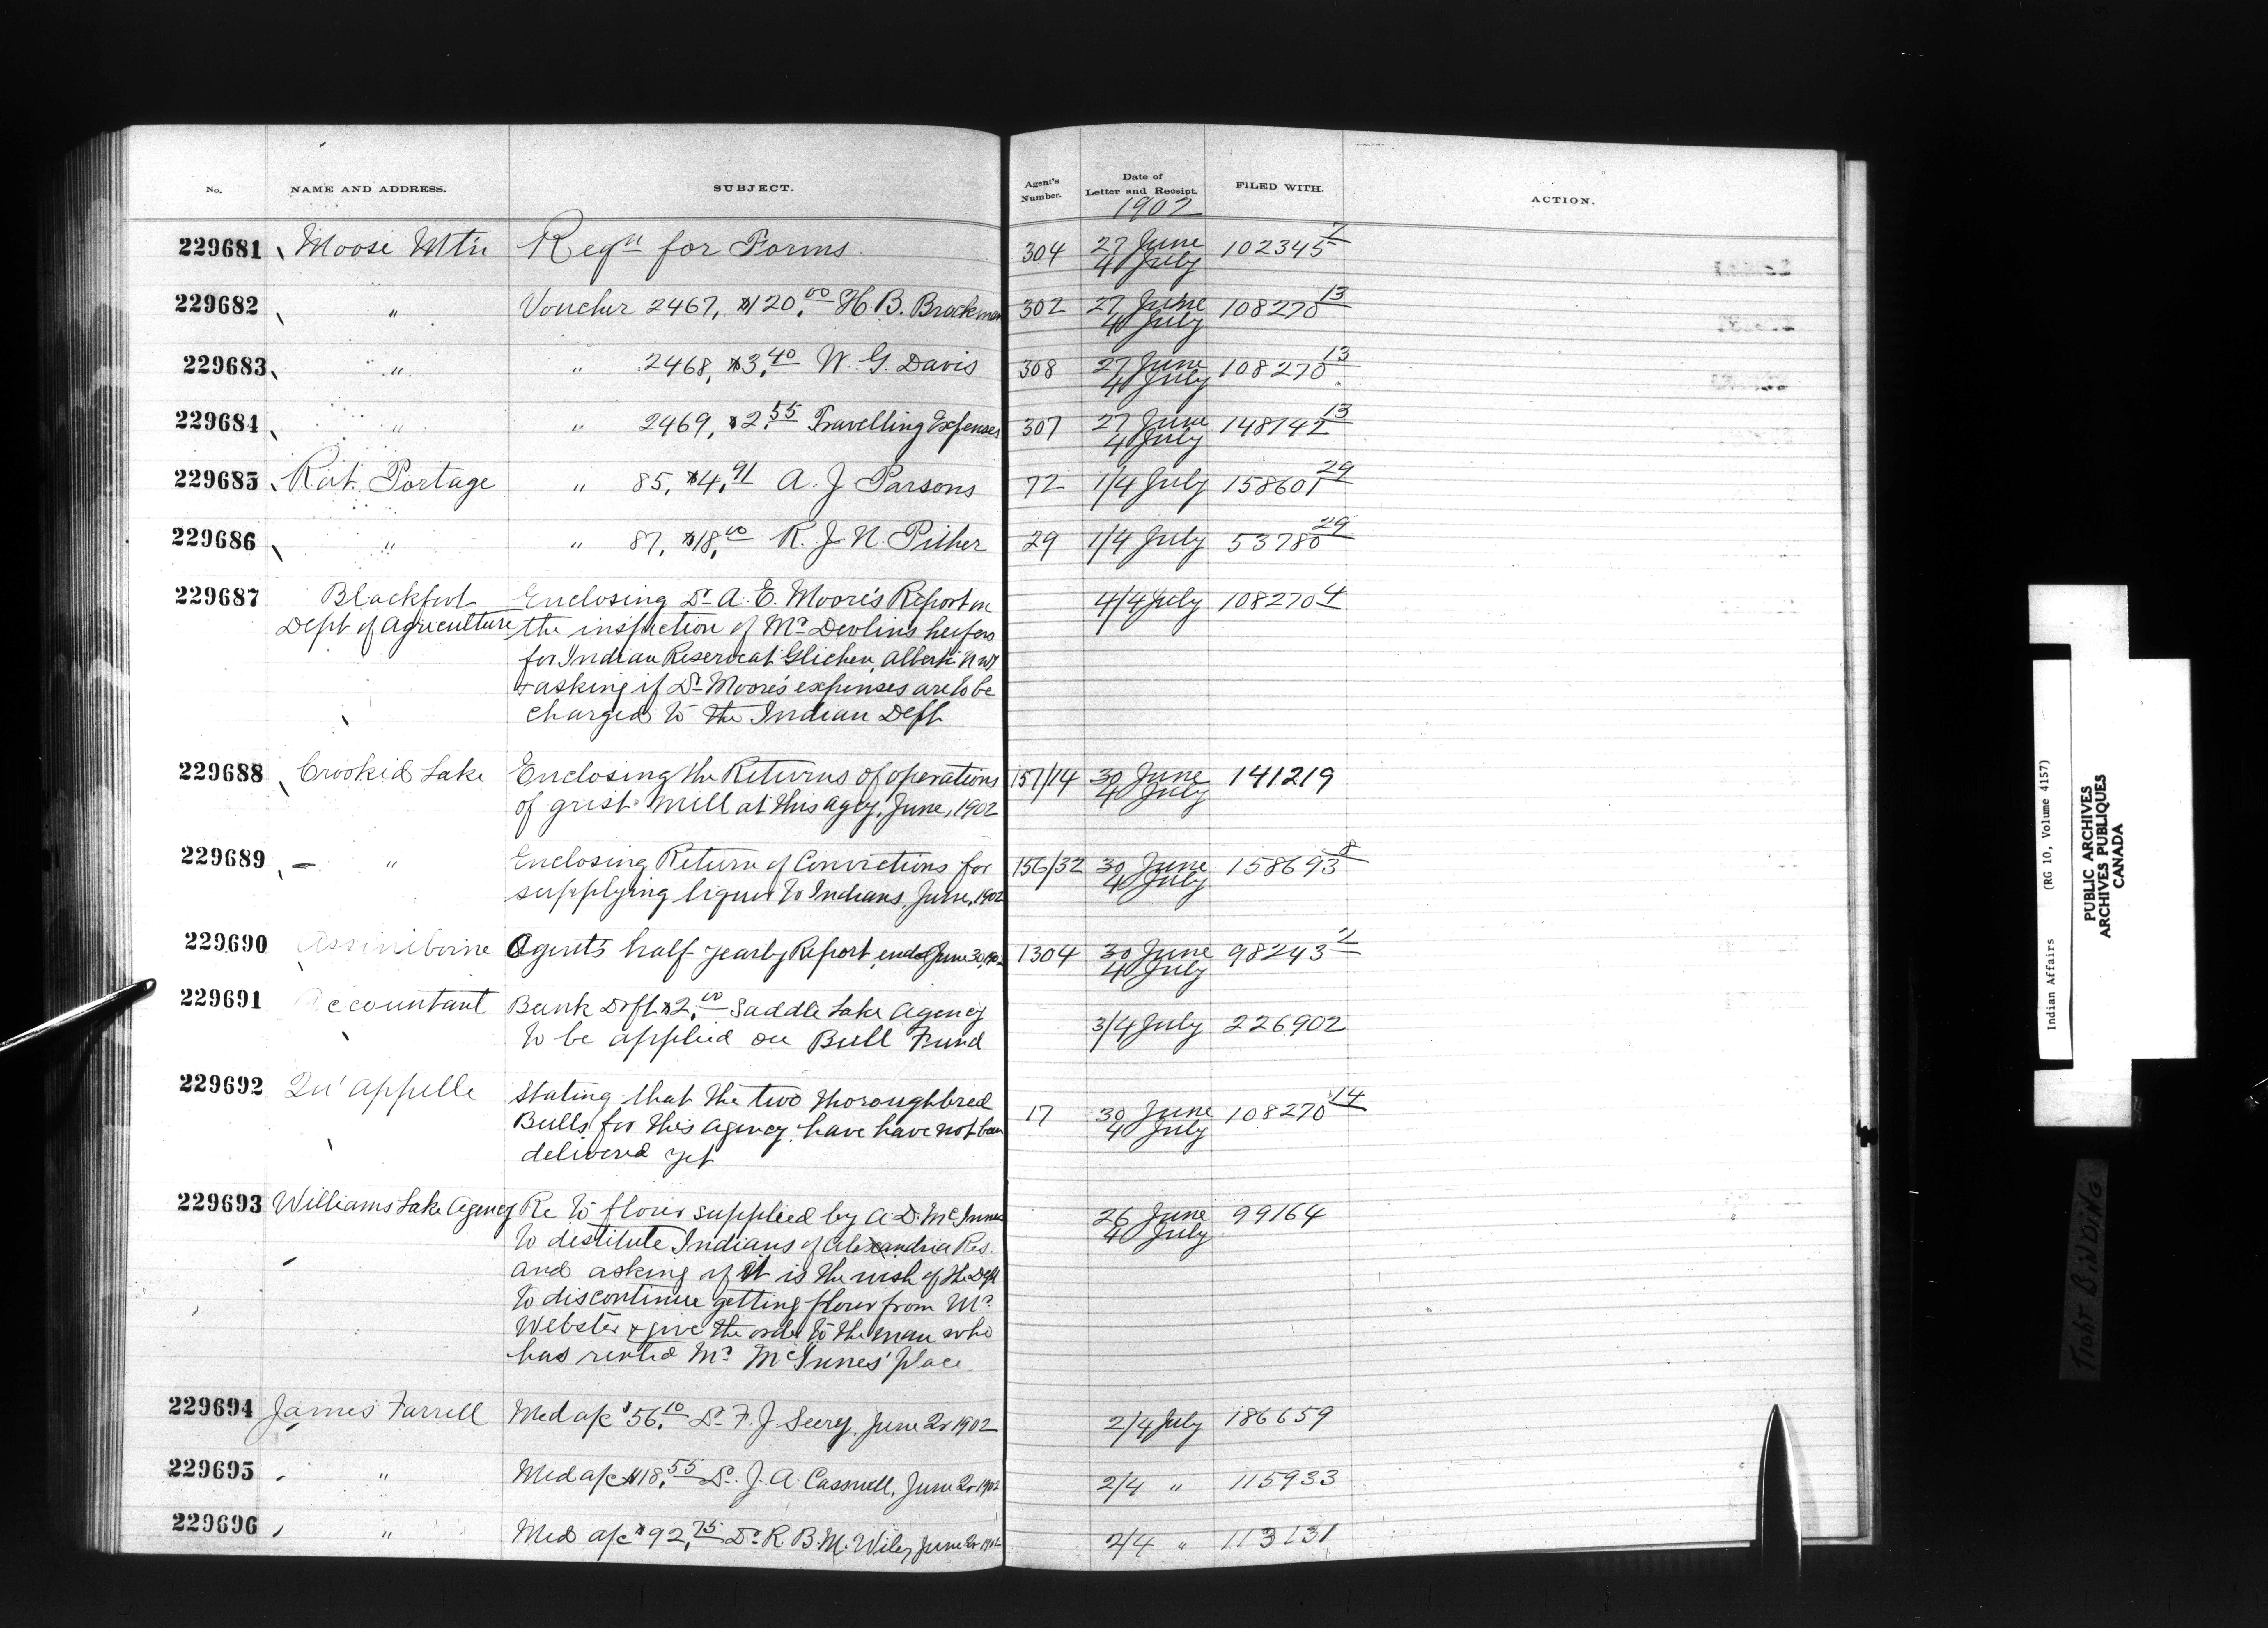 No. NAME AND ADDRESS. SUBJECT. Agent's Number. Date of Letter and Receipt. FILED WITH. ACTION.
1902
229681 Moose Mtn Reqn for Forms 304 27 June 4 July 102345 7
229682 " Voucher 2467, $120.00 H. B. Brockman 302 27 June 4 July 108270 13
229683 " " 2468, $3.40 W. G. Davis 308 27 June 4 July 108270 13
229684 " " 2469, $2.55 Travelling Expenses 307 27 June 4 July 148742 13
229685 Rat Portage " 85, $4.91 A. J Parsons 72 1/4 July 158601 29
229686 " " 87, $18.00 R. J N. Pither 29 1/4 July 53780 29
229687 Blackfoot Enclosing Dr A. E. Moore's Report on 4/4 July 108270 4
Dept of Agriculture the inspection of Mr Devlins heifers
for Indian Reserve at Glichen, Alberta N W T
+ asking if Dr Moore's expenses are to be
charged to the Indian Dept
229688 Crooked Lake Enclosing the Returns of operations 157/14 30 June 4 July 141219
of grist mill at this agcy, June, 1902
229689 " Enclosing Return of Convictions for 156/32 30 June 4 July 158693 8
supplying liquor to Indians, June, 1902
229690 Assiniboine Agents half yearly Report, ended June 30, 1902 1304 30 June 4 July 98243 2
229691 Accountant Bank Drft $2.00 Saddle Lake Agency 3/4 July 226902
to be applied on Bull Fund
229692 Qu'appelle Stating that the two thoroughbred 17 30 June 4 July 108270 14
Bulls for this Agency have have not been
delivered yet
229693 Williams Lake Agency Re to flour supplied by A. D. McInnes 26 June 4 July 99164
to destitute Indians of Alexandria Res.
and asking if it is the wish of the Dept
to discontinue getting flour from Mr
Webster + give the order to the man who
has rented Mr McInnes' place
229694 James Farrell Med a/c $56.10 Dr F. J. Seery, June Qr 1902 2/4 July 186659
229695 " Med a/c $18.55 Dr. J. A. Casswell, June Qr 1902 2/4 " 115933
229696 " Med a/c $92.75 Dr R. B. M. Wiley June Qr 1902 2/4 " 113131
Indian Affairs (RG 10, Volume 4157)
PUBLIC ARCHIVES
ARCHIVES PUBLIQUES
CANADA
TIGHT BINDING